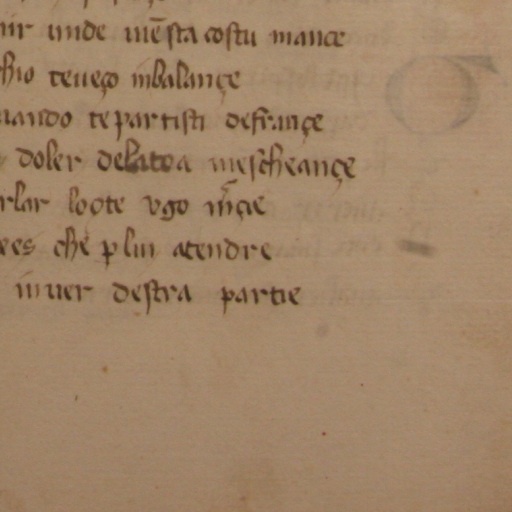 unde mēsta costu mance
chio teueço inbalançe
uando te partisti defrançe
doler delatoa mescheançe
rlar loote vgo m̄çie
ees che p lui atendre
inuer destra partie